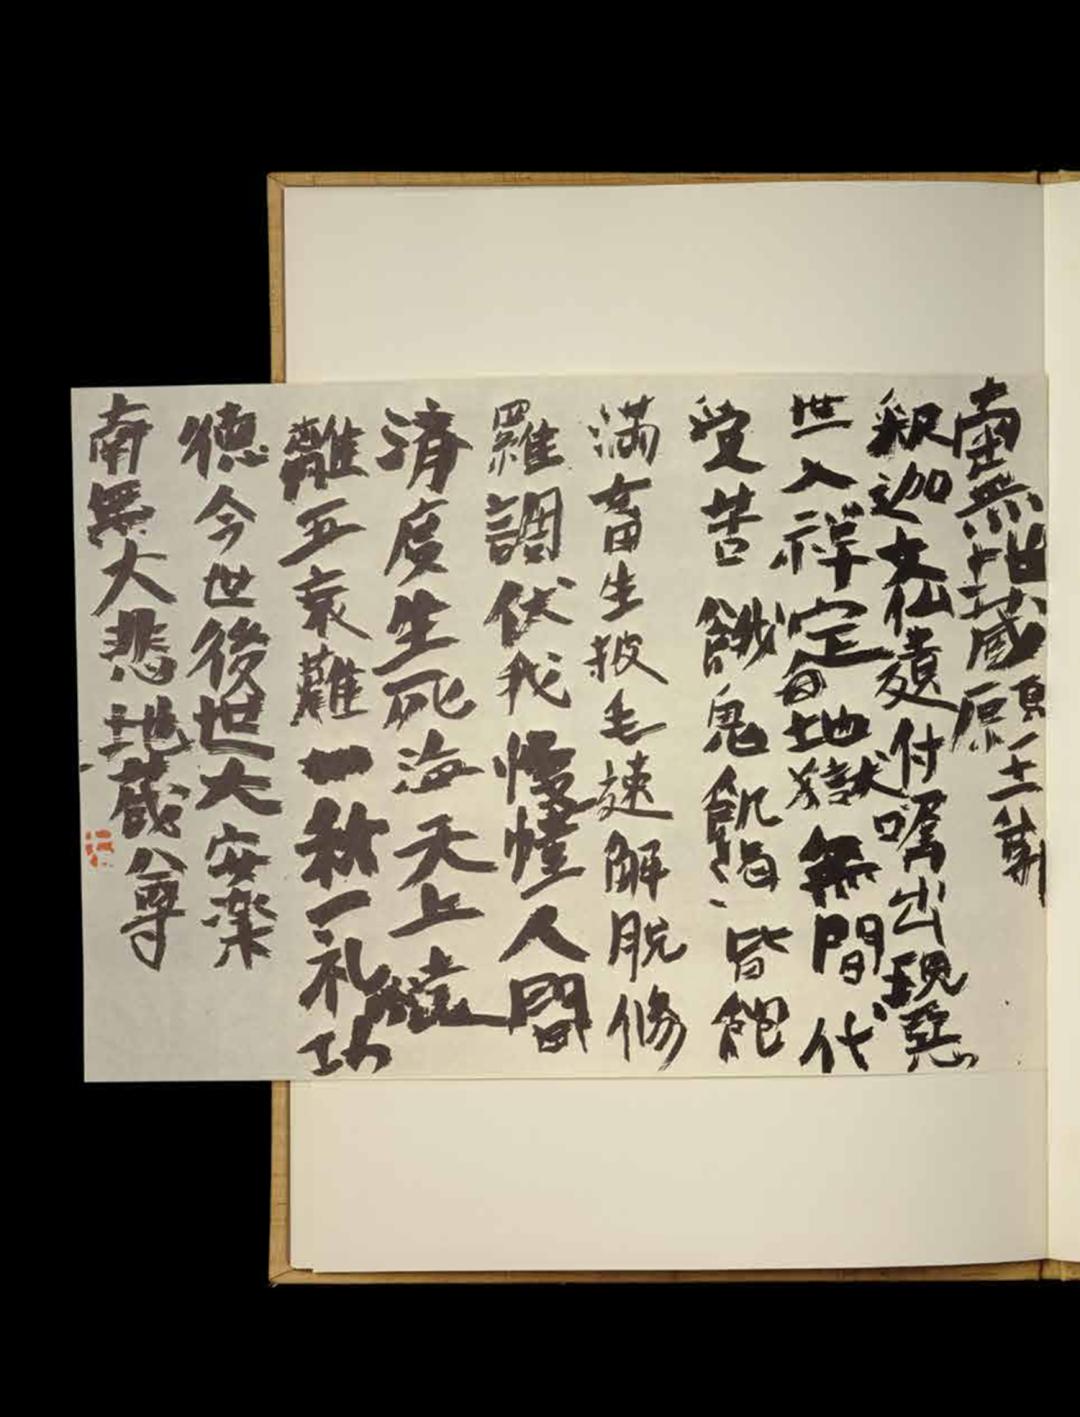 南無地蔵願王尊
釈迦文仏遺付嘱出現惡
世入禅定毎地獄無間代
受苦餓鬼飢渇皆飽
満畜生披毛速解脱脩
羅調伏我慢幢人間
済度生死海天上遠
離五衰難一称一礼功
徳今世後世大安楽
南無大悲地蔵尊